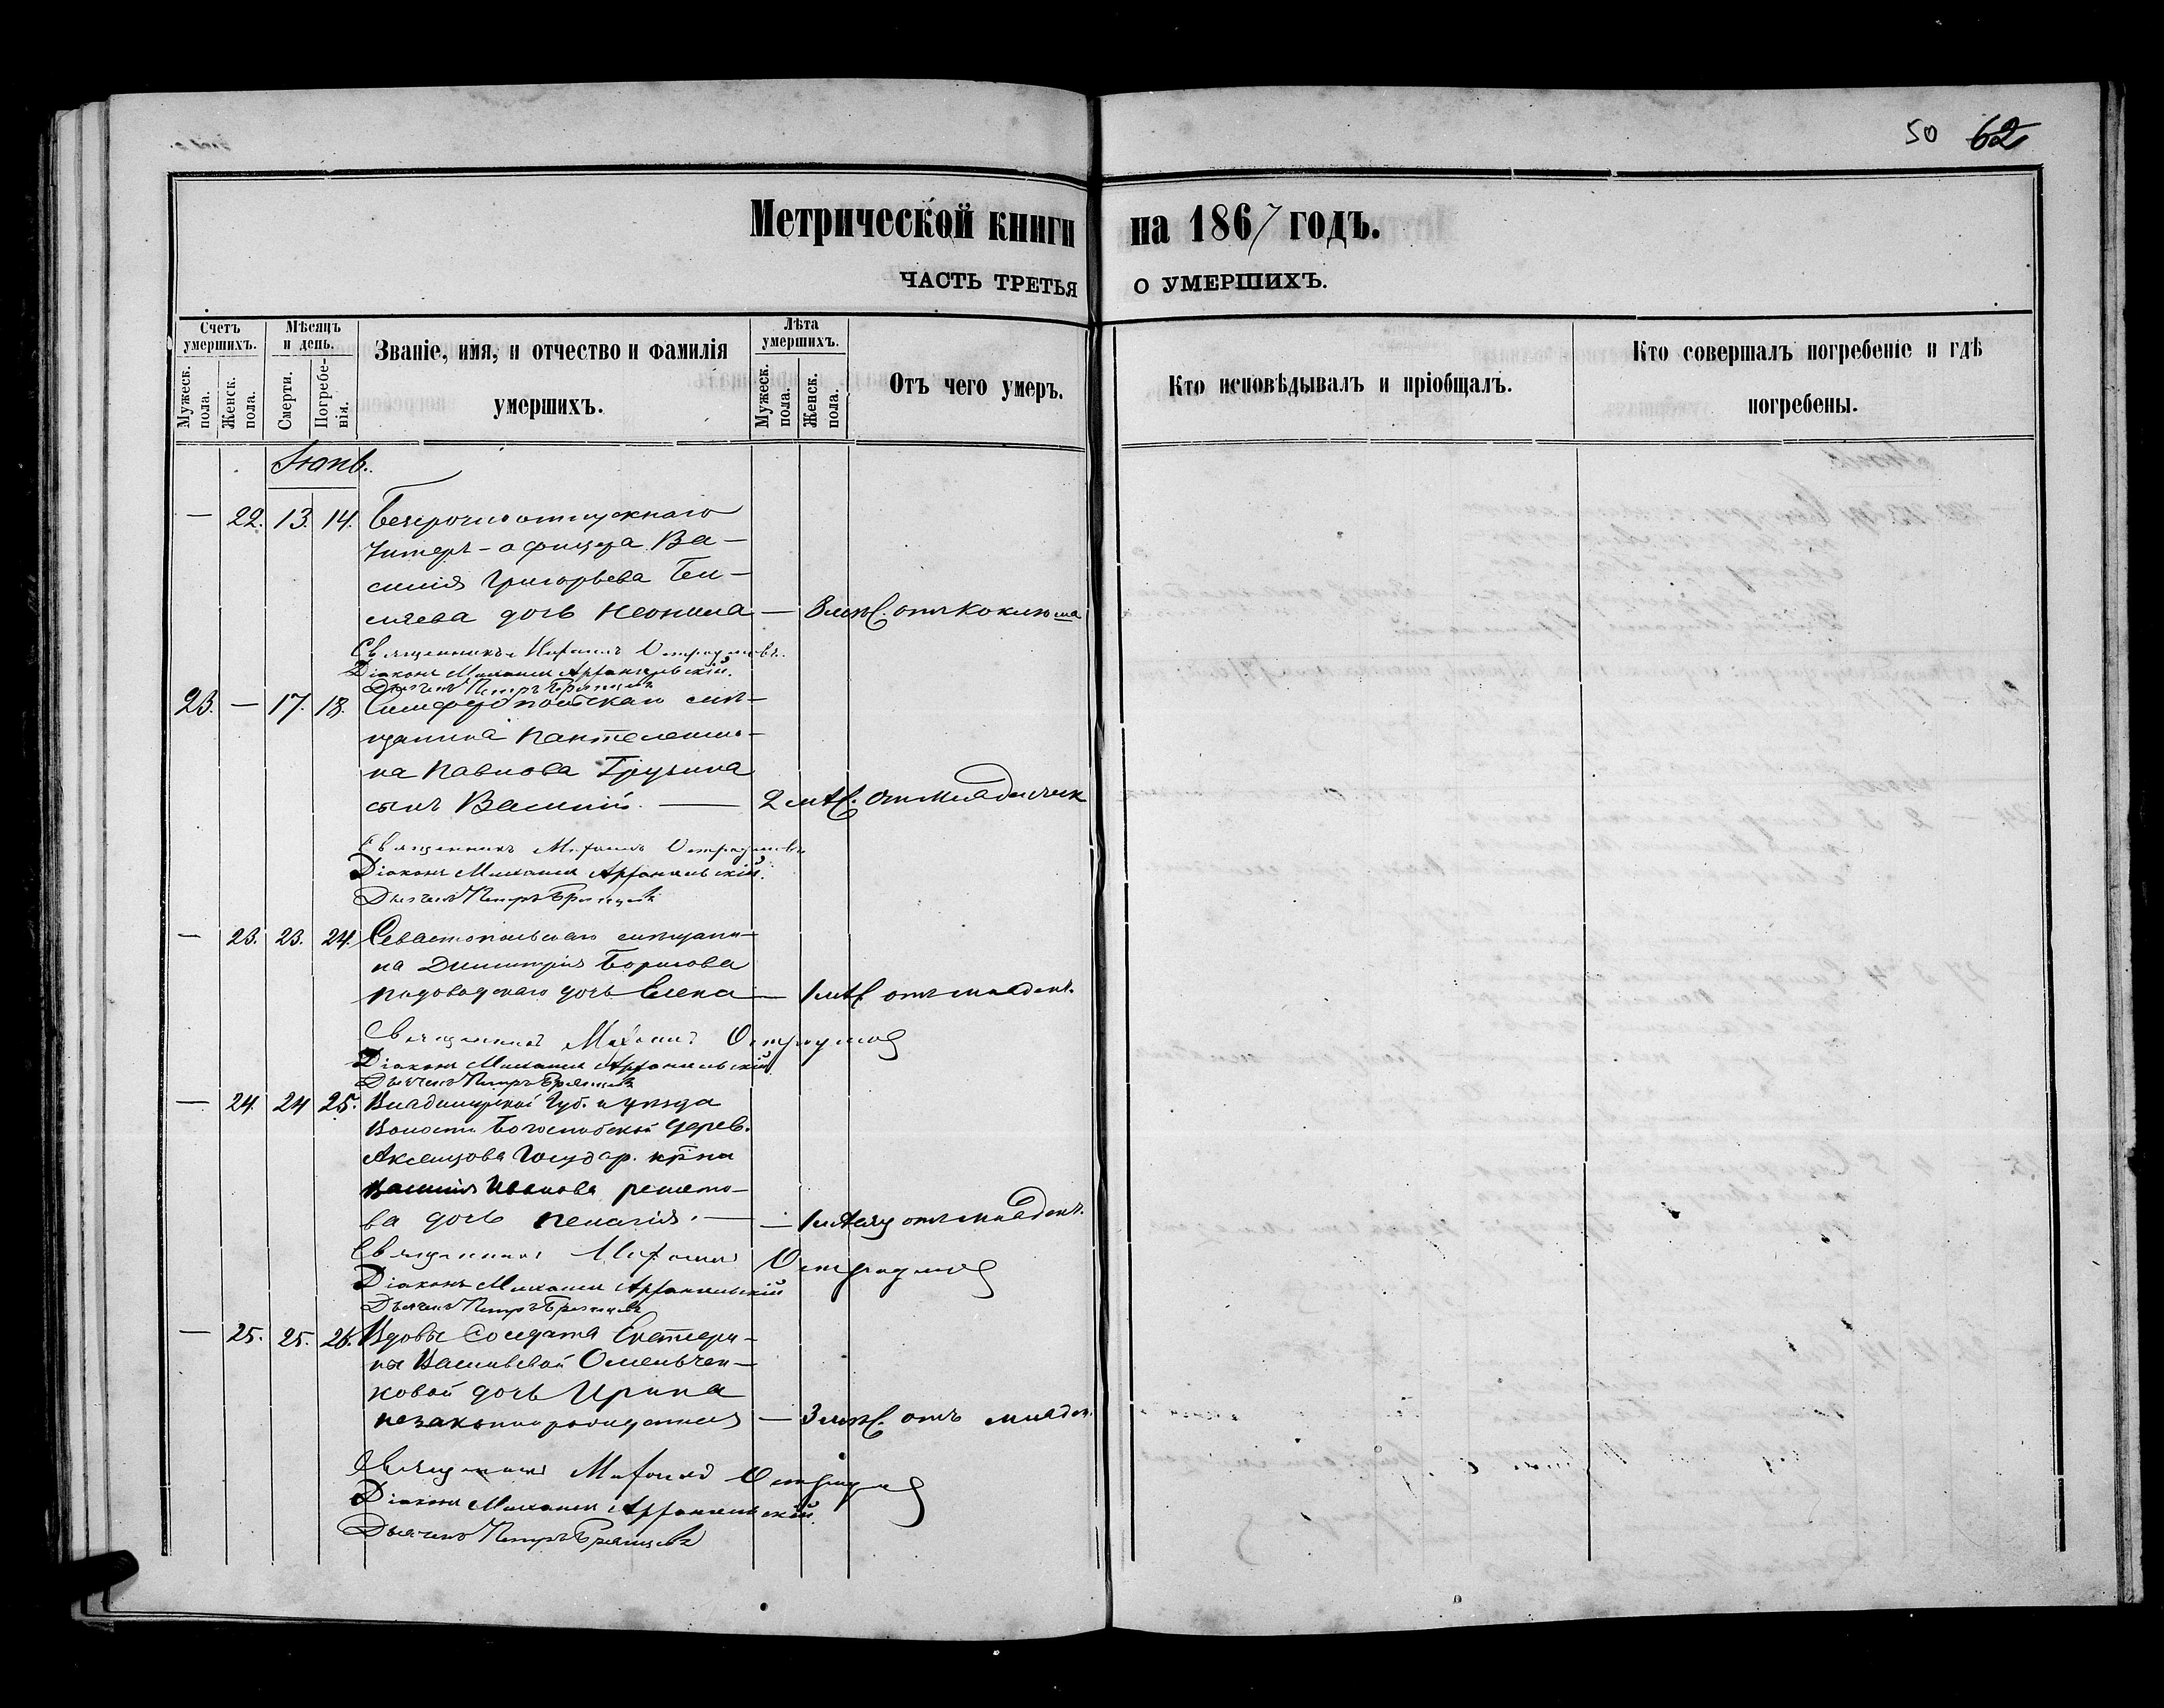 50 62
Метрической книги на 1867 годъ.
ЧАСТЬ ТРЕТЬЯ О УМЕРШИХЪ.
Счетъ умершихъ.
Мужеск. пола.
Женск. пола.
Мѣсяцъ и день.
Смерти.
Погребенія.
Званіе, имя, и отчество и фамилія
умершихъ.
Лѣта умершихъ.
Мужеск. пола.
Женск. пола.
Отъ чего умеръ.
Кто исповѣдывалъ и пріобщалъ.
Кто совершалъ погребеніе и гдѣ
погребены.
Іюнь.
— 22. 13. 14. Безсрочноотпускнаго
Унтеръ-офицера Ва-
силія Григорьева
дочь Неонила — 8 мѣс. отъ Коклюша
Священникъ Михаилъ
Діаконъ Михаилъ Архангельскій.
Дьячекъ Петръ Брянцевъ
23. — 17. 18. Симферопольскаго мѣ-
щанина Пантелеимо-
на Павлова Грузина
сынъ Василій. — 2 мѣс. От младенческ
Священникъ Михаилъ
Діаконъ Михаилъ Архангельскій.
Дьячекъ Петръ Брянцевъ
— 23. 23. 24. Севастопольскаго мѣщани-
на Димитрія Борисова
дочь Елена — 1 мѣс. отъ младенч.
Священникъ Михаилъ
Діаконъ Михаилъ Архангельскій
Дьячекъ Петръ Брянцевъ
— 24. 24 25. Владимірской Губ. и уѣзда
Волости Богословской дерев.
Государ. кр-на
Василія Иванова
ва дочь Пелагія. — 1 мѣсяц отъ младенч.
Священникъ Михаилъ
Діаконъ Михаилъ Архангельскій
Дьячекъ Петръ Брянцевъ
— 25. 25. 26. Вдовы Солдата Екатери-
ны Васильевой Омельчен-
ковой дочь Ирина
незаконнорожденная — 3 мѣс. отъ младен.
Священникъ Михаилъ
Діаконъ Михаилъ Архангельскій.
Дьячекъ Петръ Брянцевъ